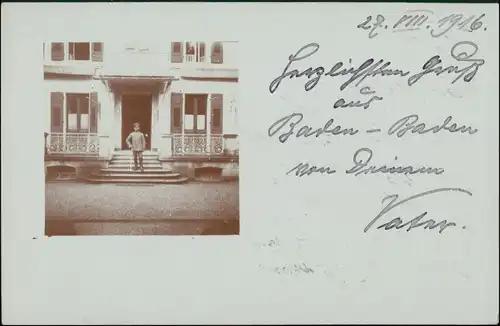 27. VIII. 1916.
Herzlichsten Gruß
aus
Baden-Baden
von Deinem
Vater.